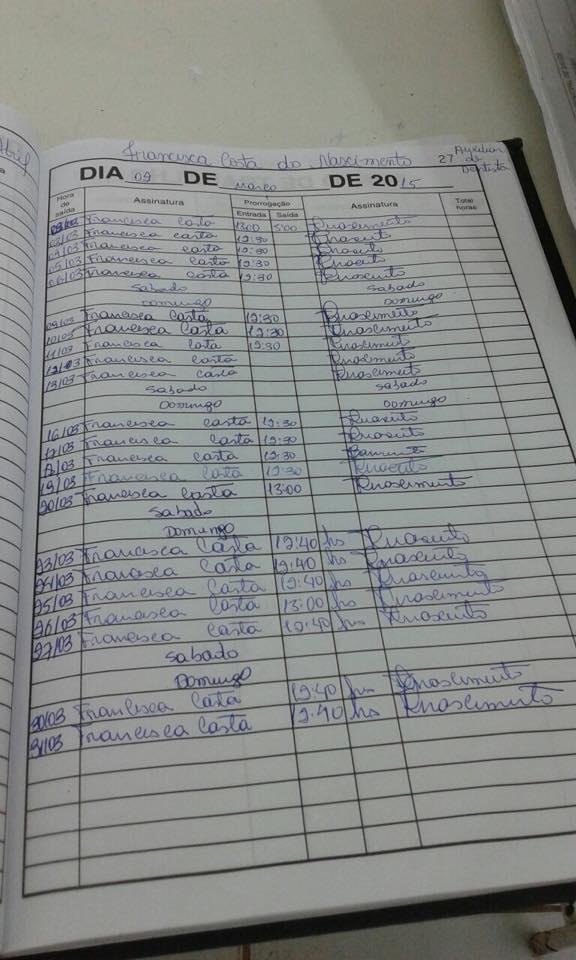 Francisca Costa do Nascimento 27 Auxiliar de Dentista
DIA 09 DE março DE 2015
Hora de saída Assinatura Prorrogação Entrada Saída Assinatura Total horas
Francisca Costa 13:00 5:00 Nascimento
03/03 Francisca Costa 12:30
04/03 Francisca Costa 12:30
05/03 Francisca Costa 12:30
06/03 Francisca Costa 12:30
Sabado Sabado
Domingo Domingo
09/03 Francisca Costa 12:30 Nascimento
10/03 Francisca Costa 12:30 Nascimento
11/03 Francisca Costa 12:30 Nascimento
12/03 Francisca Costa Nascimento
13/03 Francisca Costa Nascimento
Sabado Sabado
Domingo Domingo
16/03 Francisca Costa 12:30
17/03 Francisca Costa 12:30
18/03 Francisca Costa 12:30
19/03 Francisca Costa 12:30
20/03 Francisca Costa 13:00 Nascimento
Sabado
Domingo
23/03 Francisca Costa 12:40 hs
24/03 Francisca Costa 12:40 hs Nascimento
25/03 Francisca Costa 12:40 hs Nascimento
26/03 Francisca Costa 13:00 hs Nascimento
27/03 Francisca Costa 12:40 hs Nascimento
Sabado
Domingo
30/03 Francisca Costa 12:40 hs Nascimento
31/03 Francisca Costa 12:40 hs Nascimento